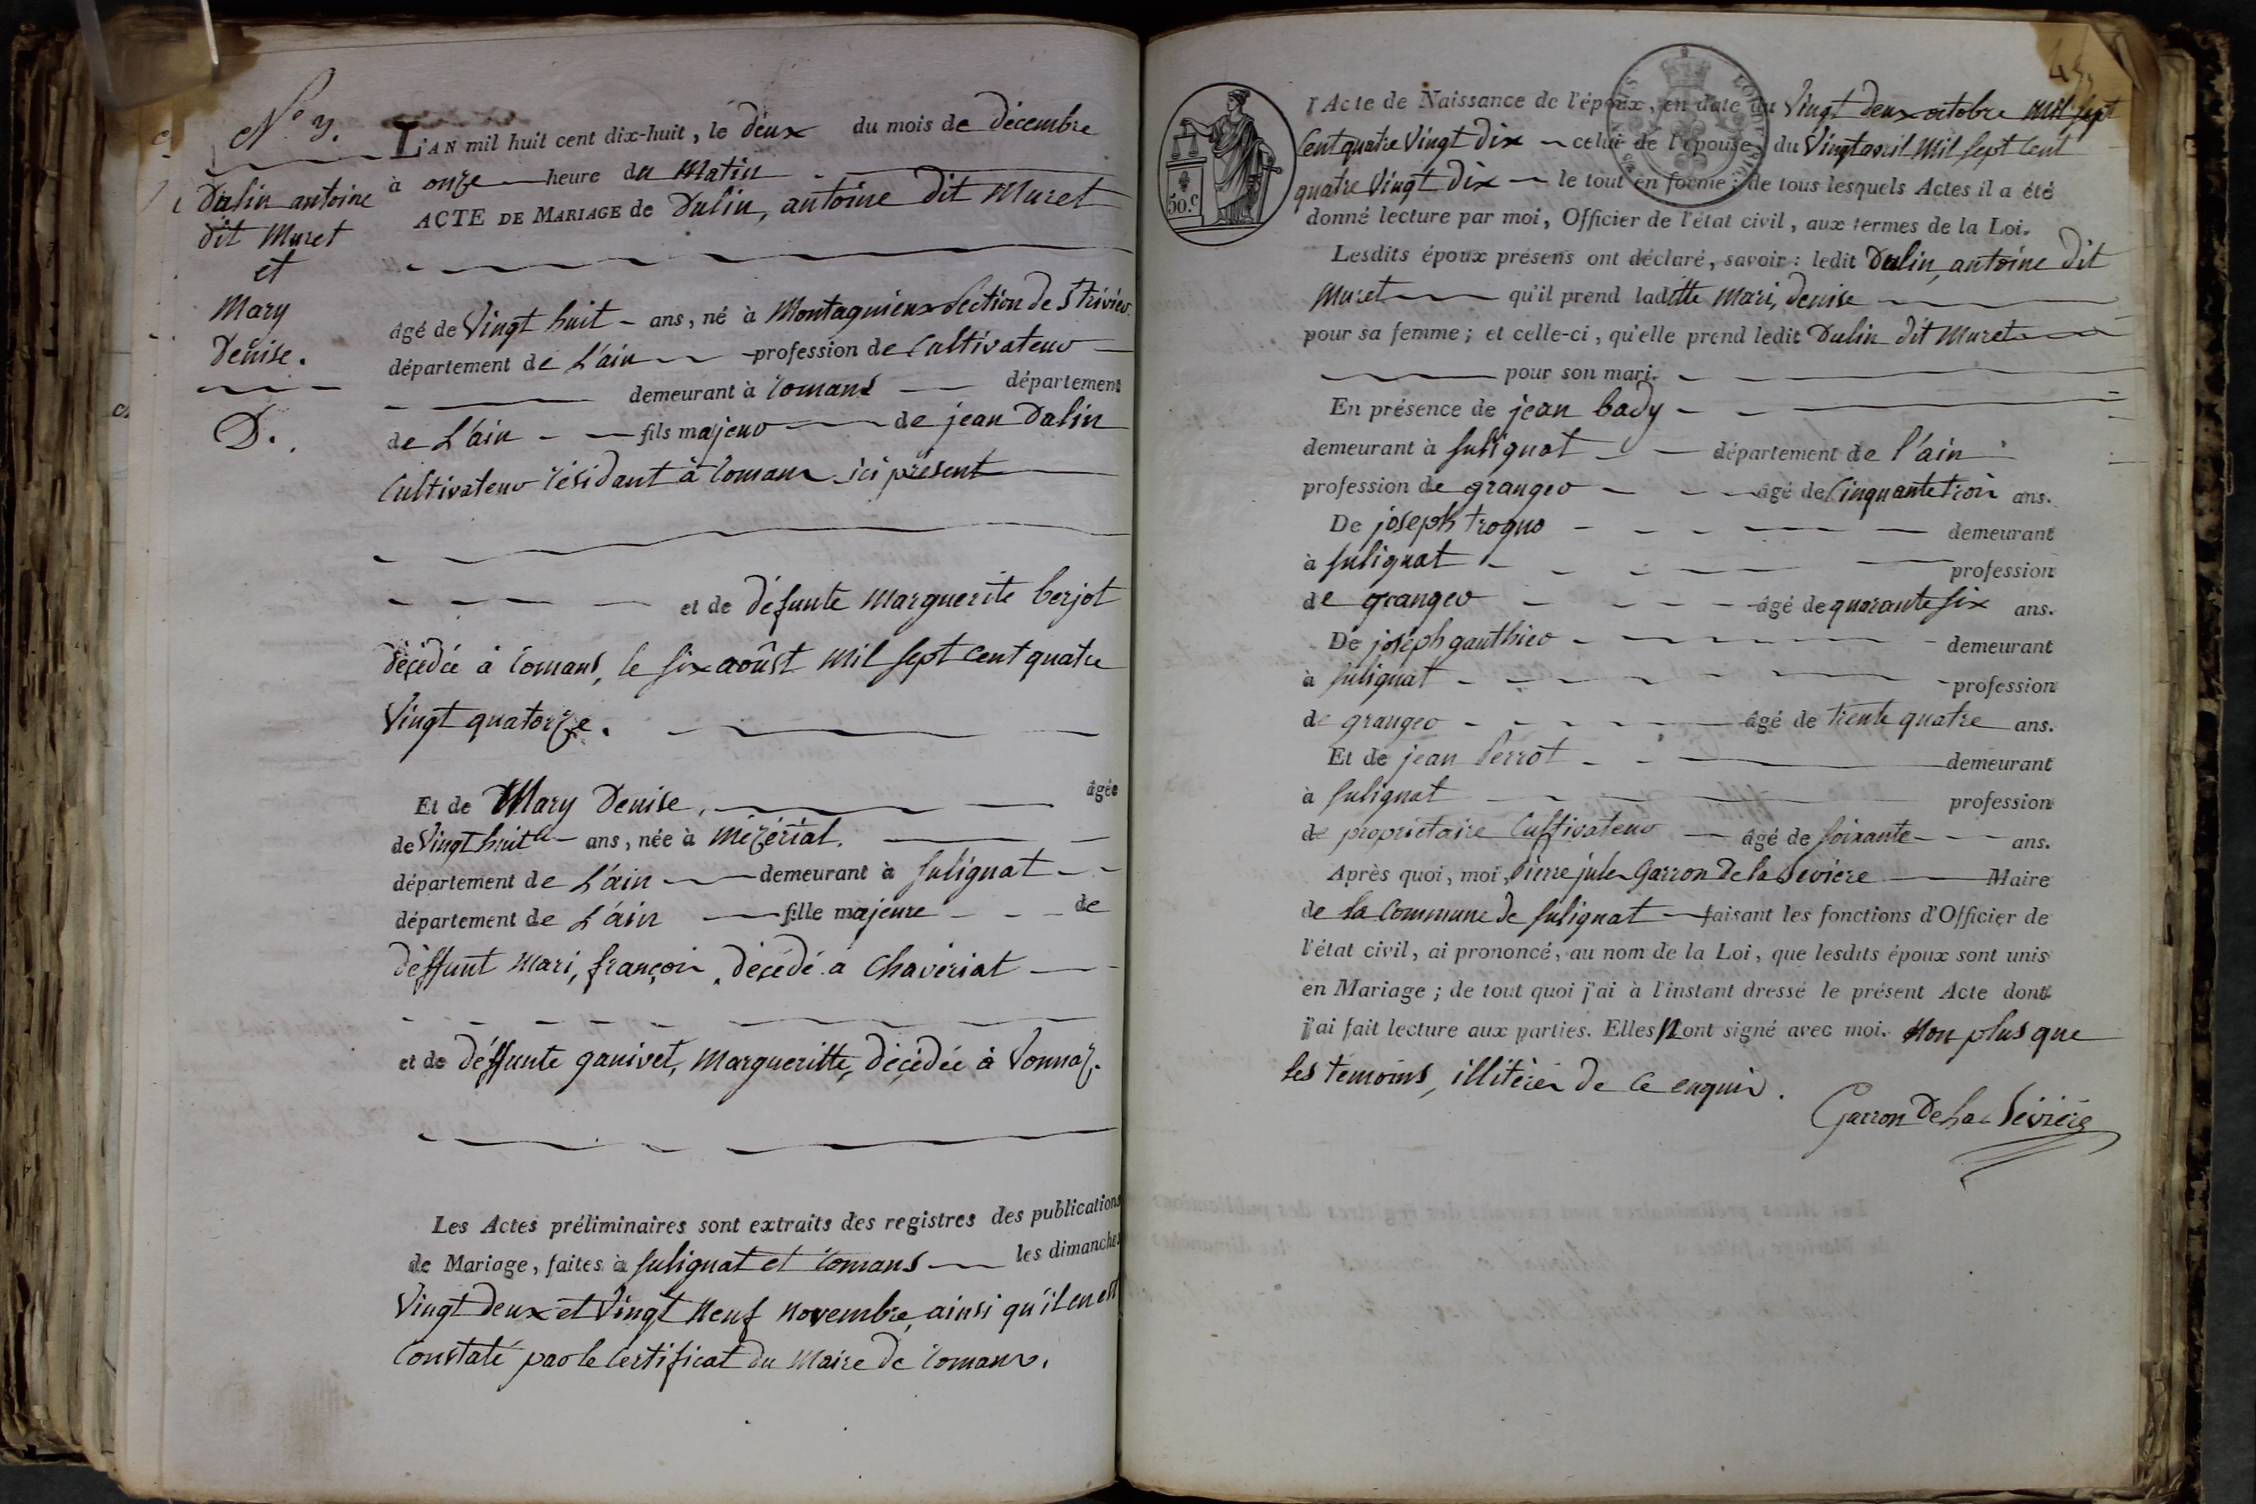 Dulin antoine
dit Muret
et
Mary
Denise.
D.
L'AN mil huit cent dix-huit, le deux du mois de décembre
à onze heure du Matin
ACTE DE MARIAGE de Dulin, antoine dit Muret
âgé de Vingt huit ans, né à Montagnieux Section de St trivier
département de L'ain profession de Cultivateur
demeurant à romans département
de L'ain fils majeur de jean Dulin
Cultivateur résidant à romans ici présent
et de défunte Marguerite berjot
décédée à romans, le six aoûst mil sept cent quatre
Vingt quatorze.
Et de Mary Denise, âgée
de Vingt huit ans, née à Mizérial.
département de L'ain demeurant à Sulignat
département de L'ain fille majeure de
déffunt Mari, françois, décédé a Chaveriat
et de déffunte ganivet, Margueritte, décédée à Vonnaz.
Les Actes préliminaires sont extraits des registres des publications
de Mariage, faites à Sulignat et romans les dimanches
Vingt deux et Vingt Neuf novembre, ainsi qu'il en est
Constaté par le Certificat du Maire de romans.
45,
50.c
l'Acte de Naissance de l'époux, en date du Vingt deux octobre mil sept
Cent quatre Vingt dix celui de l'épouse, du Vingt avril mil sept cent
quatre Vingt dix le tout en forme; de tous lesquels Actes il a été
donné lecture par moi, Officier de l'état civil, aux termes de la Loi.
Lesdits époux présens ont déclaré, savoir: ledit Dulin, antoine dit
Muret qu'il prend laditte Mari, denise
pour sa femme; et celle-ci, qu'elle prend ledit Dulin dit Muret
pour son mari.
En présence de jean bady
demeurant à Sulignat département de l'ain
profession de granger âgé de Cinquante trois ans.
De joseph trogno demeurant
à Sulignat profession
de granger âgé de quarante six ans.
De joseph gauthier demeurant
à Sulignat profession
de granger âgé de trente quatre ans.
Et de jean Perrot demeurant
à Sulignat profession
de proprietaire Cultivateur âgé de soixante ans.
Après quoi, moi, Pierre jules Garron De la Seviere Maire
de la Commune de Sulignat faisant les fonctions d'Officier de
l'état civil, ai prononcé, au nom de la Loi, que lesdits époux sont unis
en Mariage; de tout quoi j'ai à l'instant dressé le présent Acte dont
j'ai fait lecture aux parties. Elles N'ont signé avec moi. Non plus que
les témoins, illitérés de ce enquis.
Garron De La Sévière